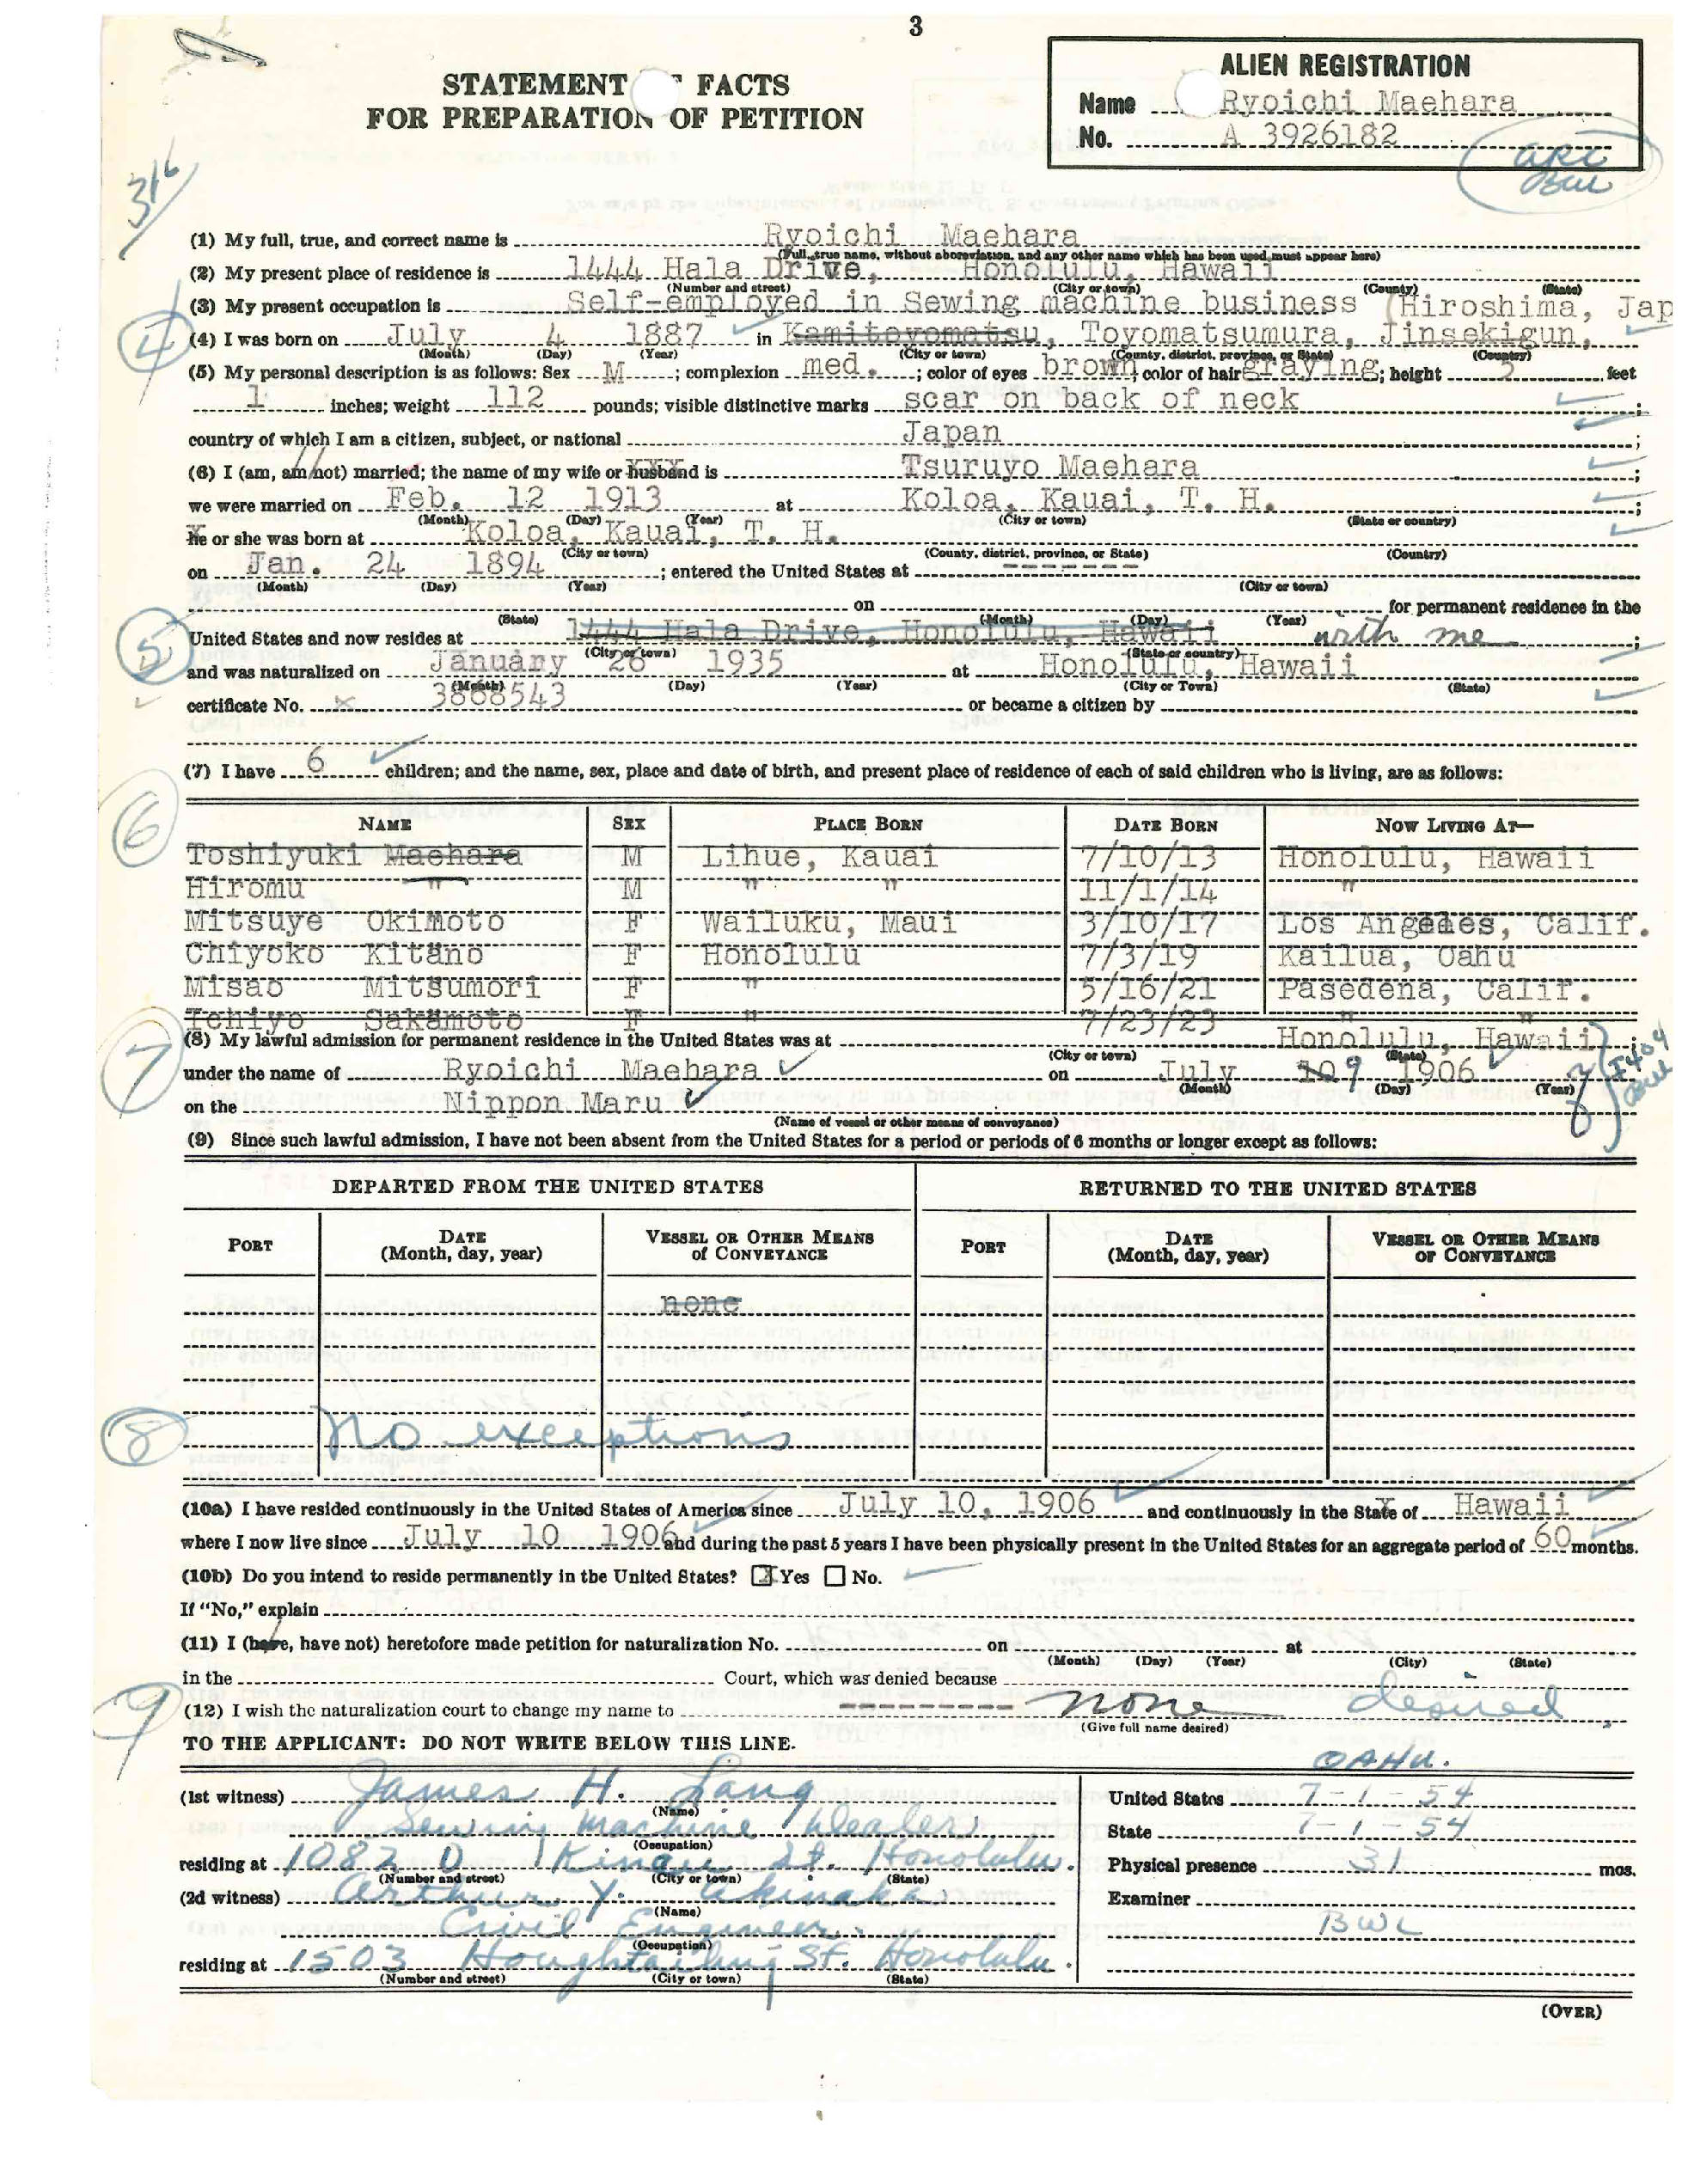 3
STATEMENT FACTS
FOR PREPARATION OF PETITION
ALIEN REGISTRATION
Name Ryoichi Maehara
No. A 3926182
316
(1) My full, true, and correct name is Ryoichi Maehara
(Full, true name, without abbreviation, and any other name which has been used, must appear here)
(2) My present place of residence is 1444 Hala Drive, Honolulu, Hawaii
(Number and street) (City or town) (County) (State)
(3) My present occupation is Self-employed in Sewing machine business (Hiroshima, Jap
4
(4) I was born on July 4 1887 in Kamitoyomatsu, Toyomatsumura, Jinsekigun,
(Month) (Day) (Year) (City or town) (County, district, province, or State) (Country)
(5) My personal description is as follows: Sex M; complexion med.; color of eyes brown; color of hair graying; height 5 feet
1 inches; weight 112 pounds; visible distinctive marks scar on back of neck;
country of which I am a citizen, subject, or national Japan;
(6) I (am, am not) married; the name of my wife or husband is Tsuruyo Maehara;
we were married on Feb. 12 1913 at Koloa, Kauai, T. H.;
(Month) (Day) (Year) (City or town) (State or country)
He or she was born at Koloa, Kauai, T. H.
(City or town) (County, district, province, or State) (Country)
on Jan. 24 1894; entered the United States at -------
(Month) (Day) (Year) (City or town)
on for permanent residence in the
(State) (Month) (Day) (Year)
5
United States and now resides at 1444 Hala Drive, Honolulu, Hawaii with me;
(City or town) (State or country)
and was naturalized on January 26 1935 at Honolulu, Hawaii
(Month) (Day) (Year) (City or Town) (State)
certificate No. 3868543 or became a citizen by
(7) I have 6 children; and the name, sex, place and date of birth, and present place of residence of each of said children who is living, are as follows:
6
NAME SEX PLACE BORN DATE BORN NOW LIVING AT—
Toshiyuki Maehara M Lihue, Kauai 7/10/13 Honolulu, Hawaii
Hiromu " M " " 11/1/14 "
Mitsuye Okimoto F Wailuku, Maui 3/10/17 Los Angeles, Calif.
Chiyoko Kitano F Honolulu 7/3/19 Kailua, Oahu
Misao Mitsumori F " 5/16/21 Pasedena, Calif.
Ichiyo Sakamoto F " 7/23/23 " "
7
(8) My lawful admission for permanent residence in the United States was at Honolulu, Hawaii;
(City or town) (State)
under the name of Ryoichi Maehara on July 10 9 1906
(Month) (Day) (Year)
on the Nippon Maru
(Name of vessel or other means of conveyance)
(9) Since such lawful admission, I have not been absent from the United States for a period or periods of 6 months or longer except as follows:
DEPARTED FROM THE UNITED STATES RETURNED TO THE UNITED STATES
PORT DATE (Month, day, year) VESSEL OR OTHER MEANS of CONVEYANCE PORT DATE (Month, day, year) VESSEL OR OTHER MEANS OF CONVEYANCE
none
8
No exceptions
(10a) I have resided continuously in the United States of America since July 10, 1906 and continuously in the State of Hawaii
where I now live since July 10 1906 and during the past 5 years I have been physically present in the United States for an aggregate period of 60 months.
(10b) Do you intend to reside permanently in the United States? X Yes No.
If "No," explain
(11) I (have, have not) heretofore made petition for naturalization No. on at
(Month) (Day) (Year) (City) (State)
in the Court, which was denied because
9
(12) I wish the naturalization court to change my name to --------- none desired.
(Give full name desired)
TO THE APPLICANT: DO NOT WRITE BELOW THIS LINE.
OAHU.
(1st witness) James H. Lang
(Name)
Sewing Machine Dealer
(Occupation)
residing at 1082 D Kinau St. Honolulu.
(Number and street) (City or town) (State)
(2d witness) Arthur Y. Akinaka
(Name)
Civil Engineer
(Occupation)
residing at 1503 Houghtailing St. Honolulu.
(Number and street) (City or town) (State)
United States 7-1-54
State 7-1-54
Physical presence 31 mos.
Examiner
BWL
(OVER)